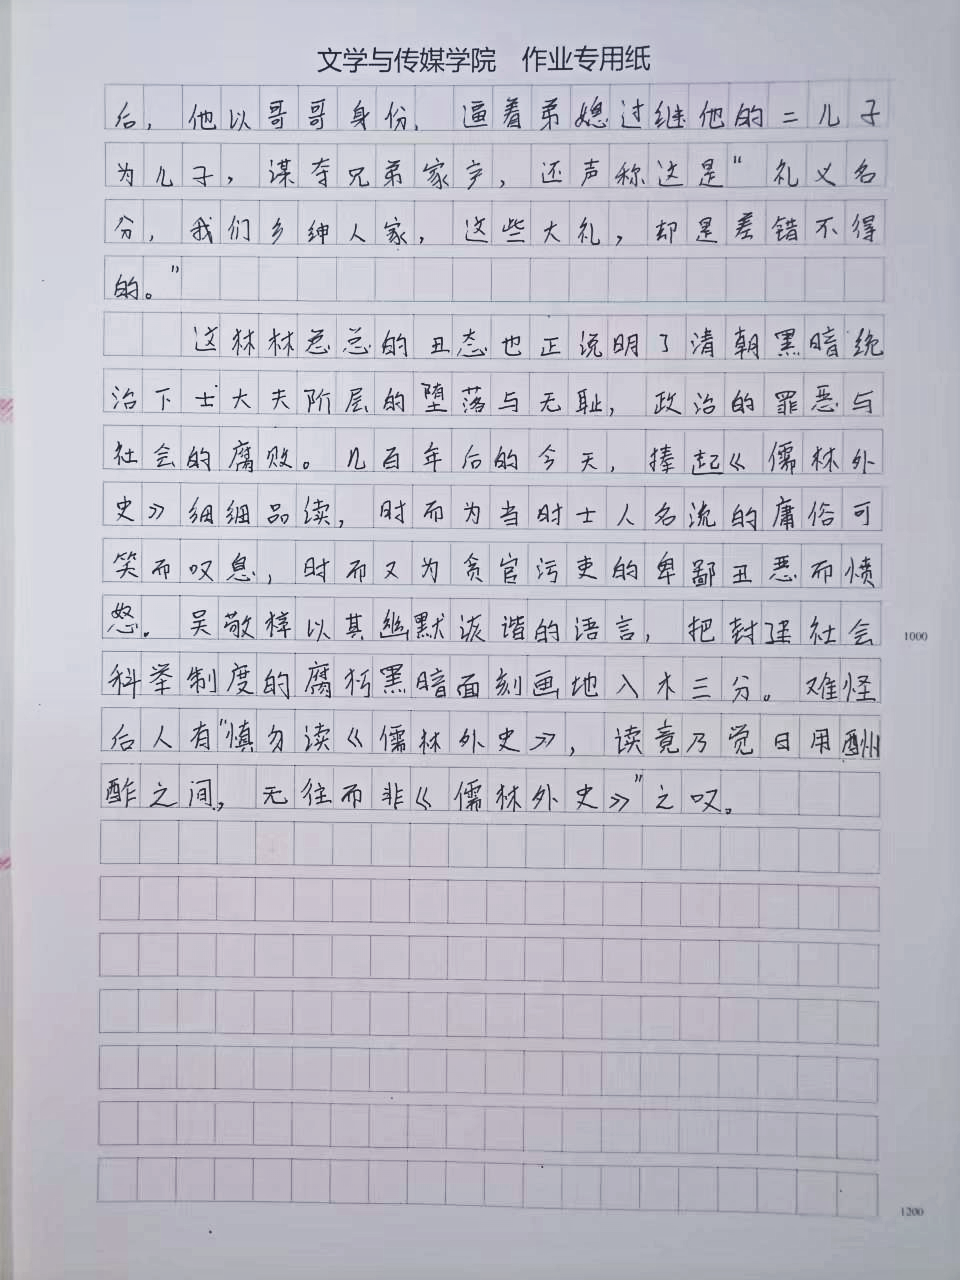 文学与传媒学院 作业专用纸
后，他以哥哥身份，逼着弟媳过继他的二儿子
为儿子，谋夺兄弟家产，还声称这是“礼义名
分，我们乡绅人家，这些大礼，却是差错不得
的。”
这林林总总的丑态也正说明了清朝黑暗统
治下士大夫阶层的堕落与无耻，政治的罪恶与
社会的腐败。几百年后的今天，捧起《儒林外
史》细细品读，时而为当时士人名流的庸俗可
笑而叹息，时而又为贪官污吏的卑鄙丑恶而愤
怒。吴敬梓以其幽默诙谐的语言，把封建社会
1000
科举制度的腐朽黑暗面刻画地入木三分。难怪
后人有“慎勿读《儒林外史》，读竟乃觉日用酬
酢之间，无往而非《儒林外史》”之叹。
1200